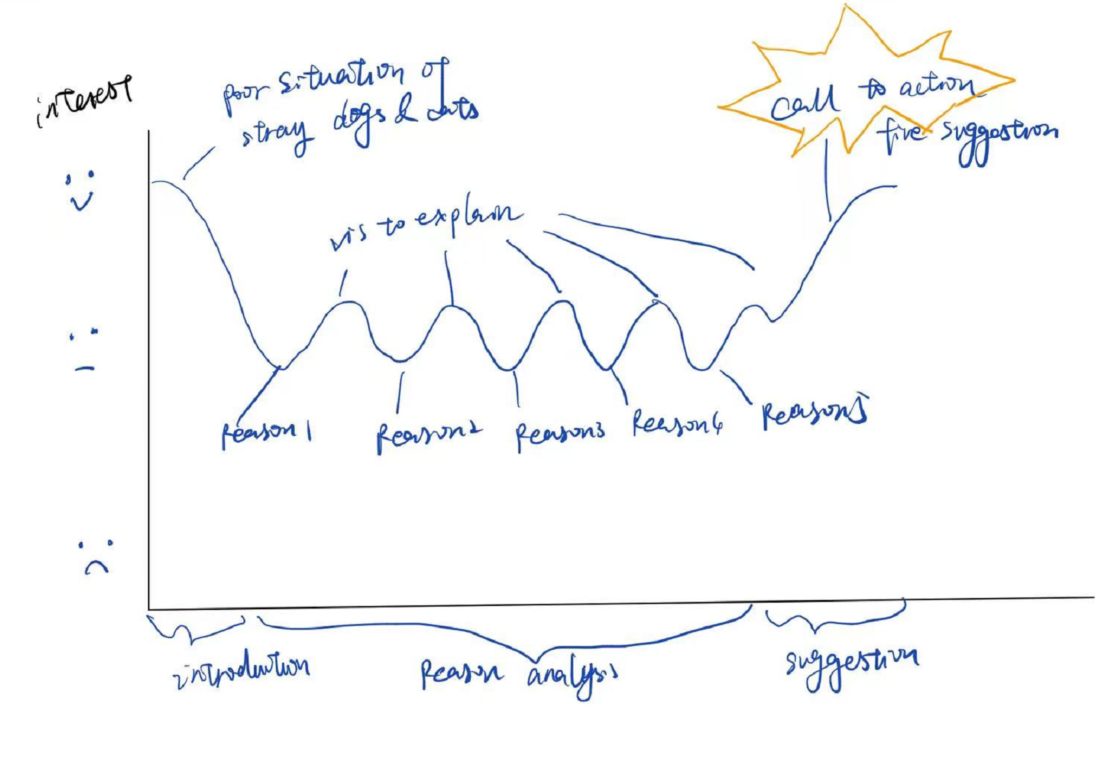 interest
poor situation of
stray dogs & cats
call to action
five suggestion
vis to explain
Reason1
Reason2
Reason3
Reason4
Reason5
introduction
Reason analysis
suggestion